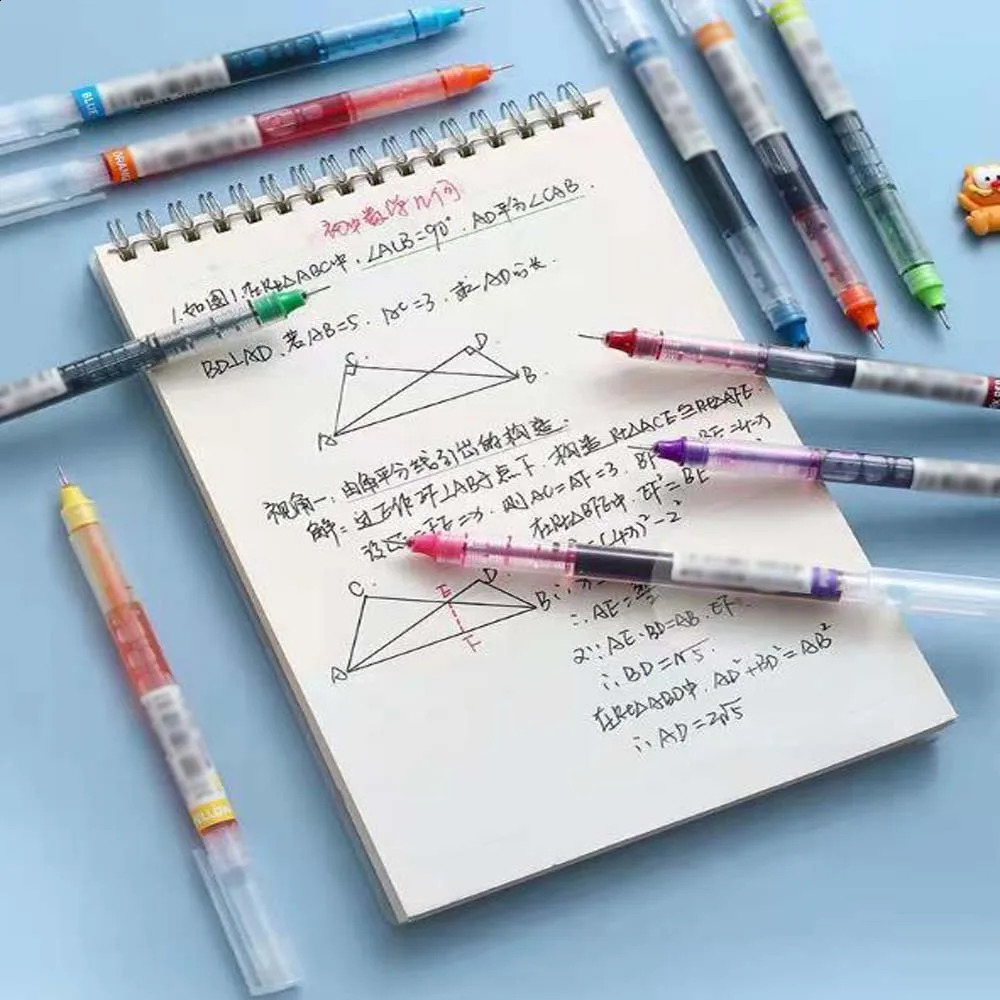 初中数学几何
1.如图1,在Rt△ABC中,∠ACB=90°,AD平分∠CAB.
BD⊥AD,若AB=5,AC=3,求AD的长.
C
D
B
A
视角一:由角平分线引出的构造.
解:过E作EF⊥AB于点F,构造Rt△ACE≌Rt△AFE.
=FE=x,则AC=AF=3.BF BE=4-x
在Rt△BFE中,EF²=BE
(4-x)²-2²
∴AE=
∴AE·BD=AB·EF
∴BD=√5.
在Rt△ABD中,AD²+BD²=AB²
∴AD=2√5
C
E
D
B
F
A
BLUE
ORANG
LLOW